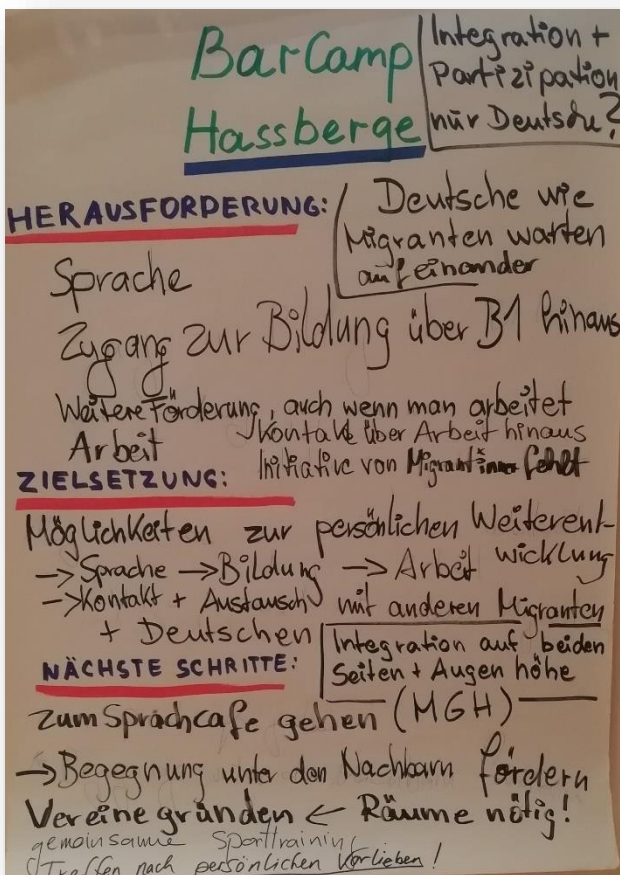 BarCamp
Hassberge
Integration +
Partizipation
nur Deutsche?
HERAUSFORDERUNG:
Deutsche wie
Migranten warten
aufeinander
Sprache
Zugang zur Bildung über B1 hinaus
Weitere Förderung, auch wenn man arbeitet
Arbeit
Kontakt über Arbeit hinaus
Initiative von Migrant*innen fehlt
ZIELSETZUNG:
Möglichkeiten zur persönlichen Weiterent-
wicklung
-> Sprache -> Bildung -> Arbeit
-> Kontakt + Austausch mit anderen Migranten
+ Deutschen
Integration auf beiden
Seiten + Augenhöhe
NÄCHSTE SCHRITTE:
zum Sprachcafe gehen (MGH)
-> Begegnung unter den Nachbarn fördern
Vereine gründen <- Räume nötig!
gemeinsame Sporttraining
Treffen nach persönlichen Vorlieben!